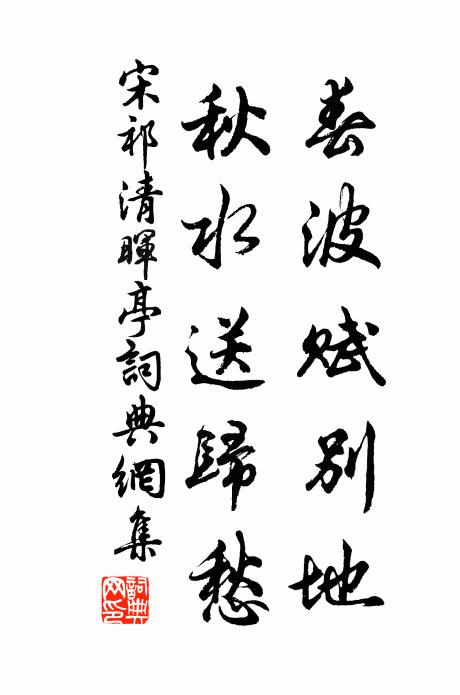 春波賦別地
秋水送歸愁
宋祁清暉亭詞典網集
詞典網印